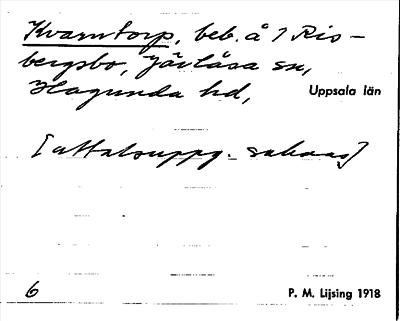 Kvarntorp, beb. å 1 Ris-
bergsbo, Järlåsa sn,
Hagunda hd, Uppsala län
[uttalsuppg. saknas]
6 P. M. Lijsing 1918